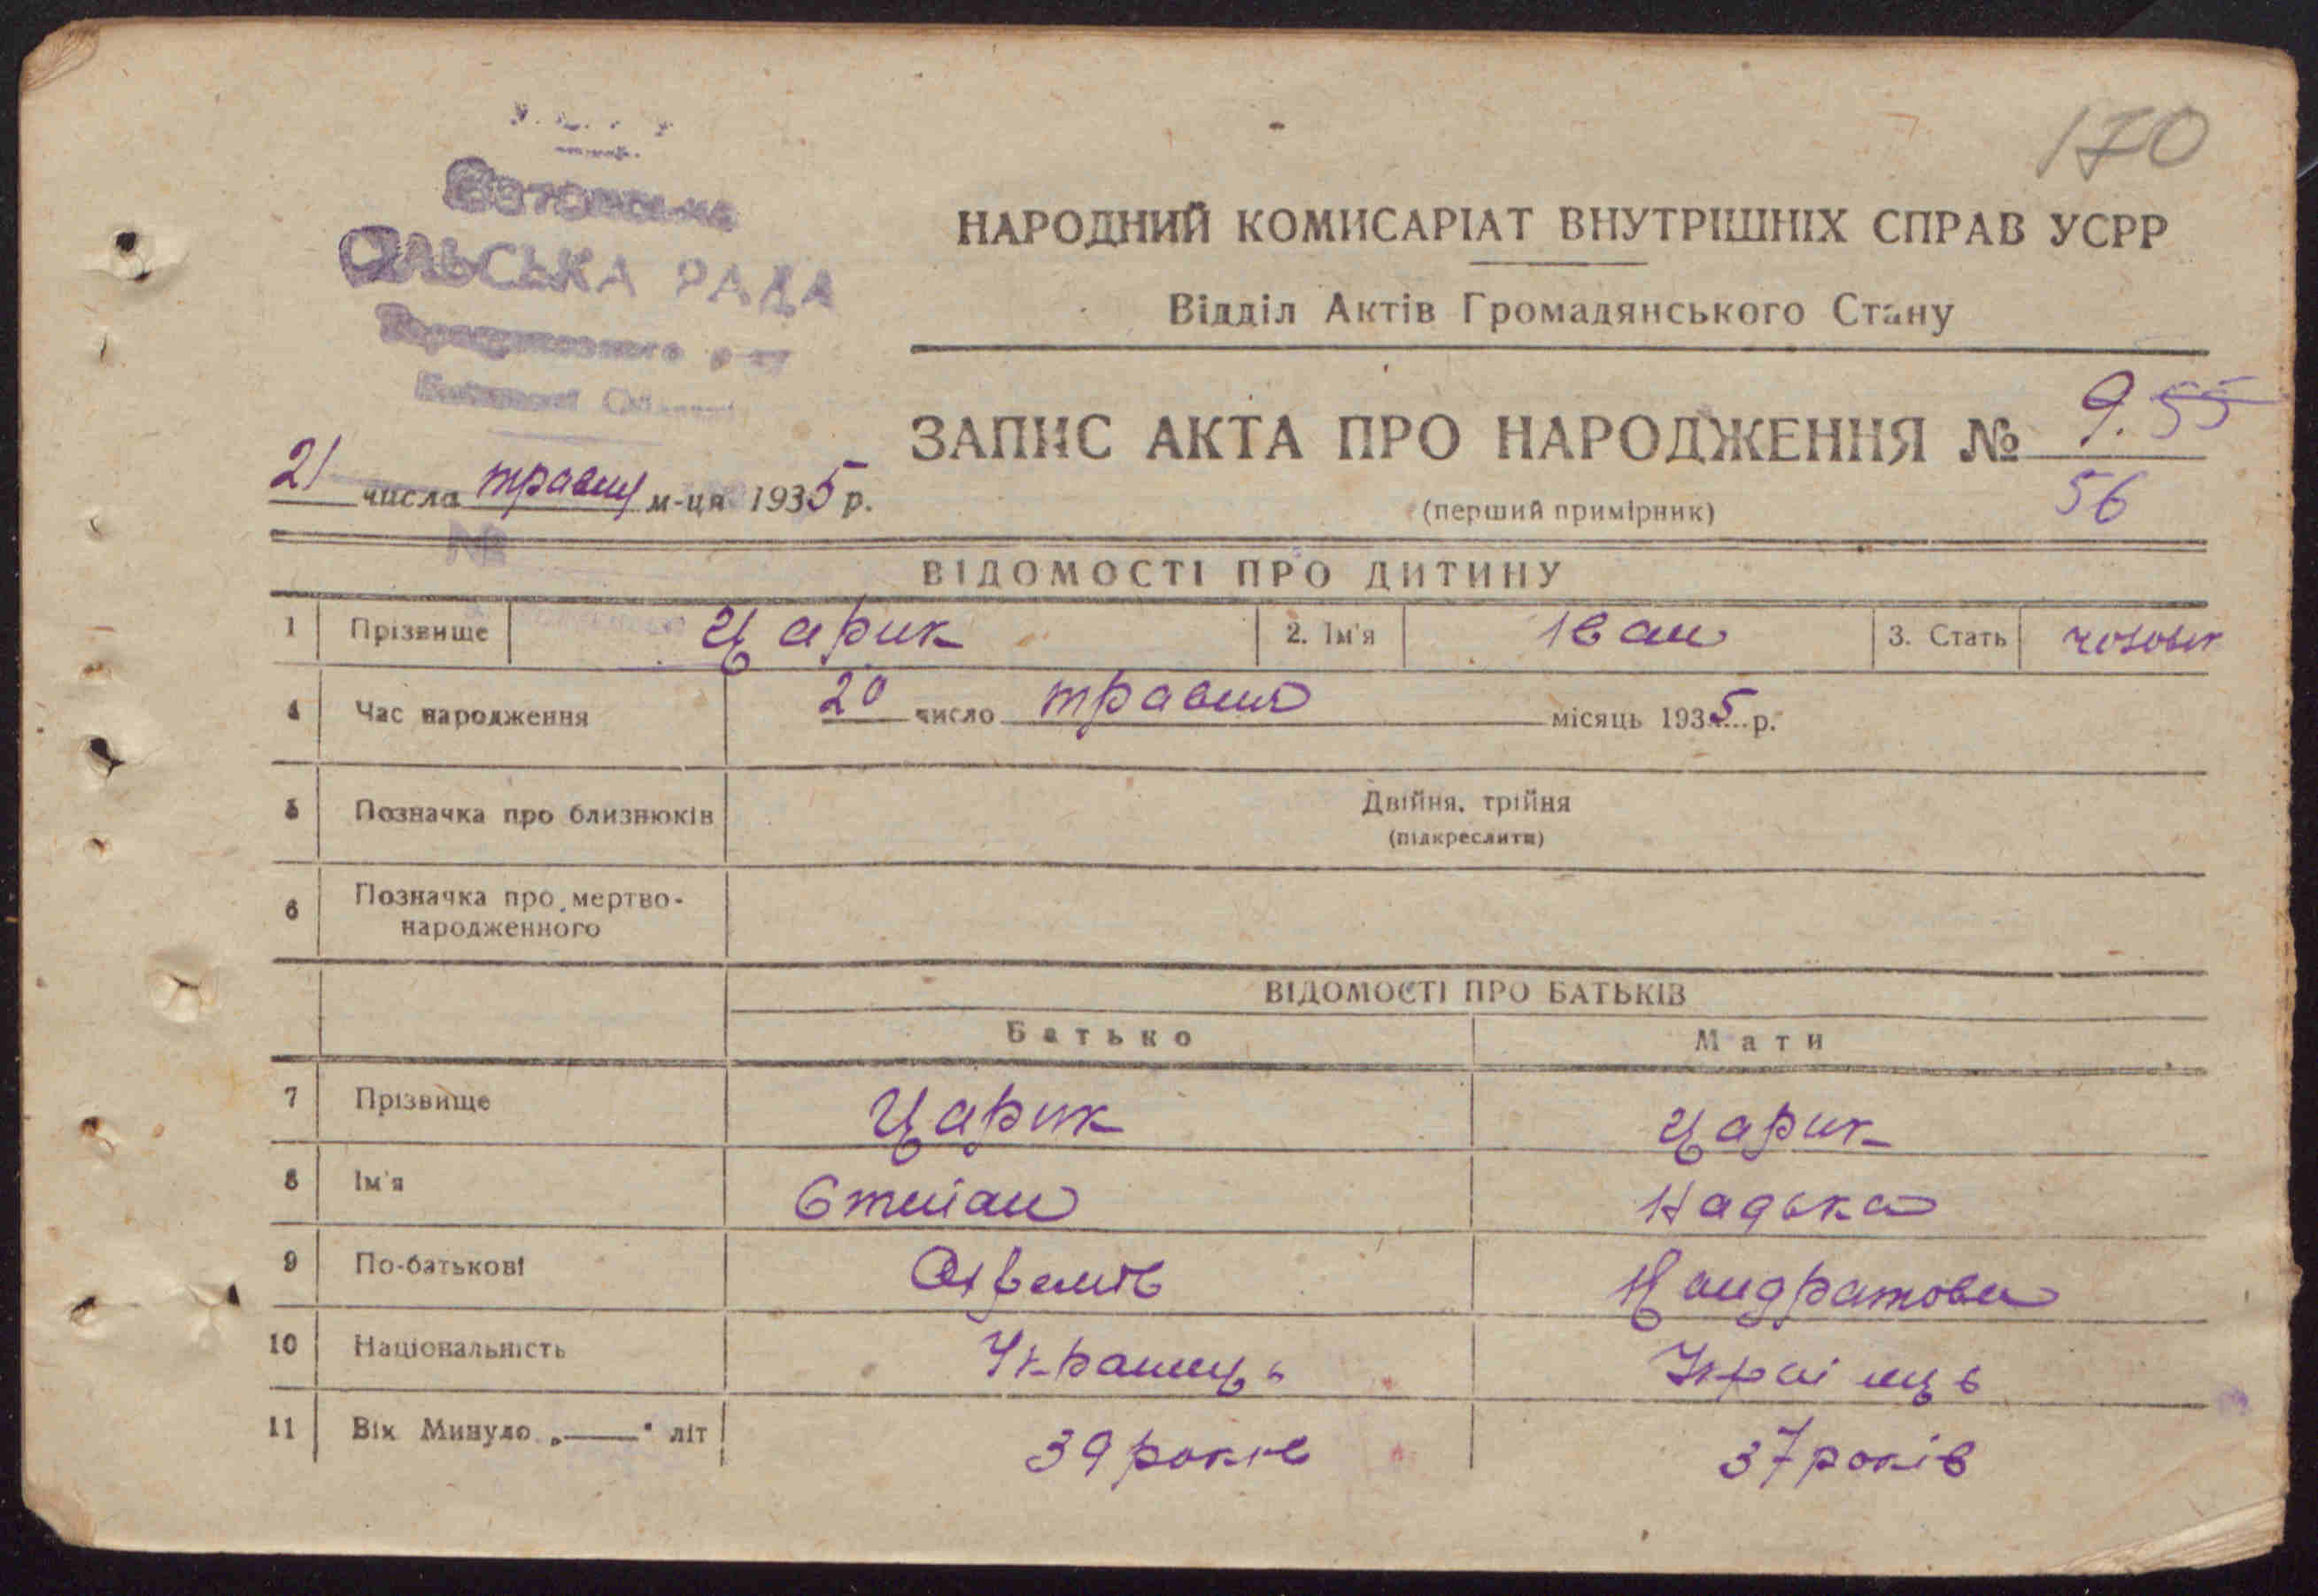 170
СІЛЬСЬКА РАДА
НАРОДНИЙ КОМИСАРІАТ ВНУТРІШНІХ СПРАВ УСРР
Відділ Актів Громадянського Стану
ЗАПИС АКТА ПРО НАРОДЖЕННЯ № 9. 55
56
(перший примірник)
21 числа травня м-ця 1935 р.
№
ВІДОМОСТІ ПРО ДИТИНУ
1 Прізвище Царик 2. Ім'я Іван 3. Стать чоловік
4 Час народження 20 число травня місяць 1935 р.
5 Позначка про близнюків Двійня, трійня
(підкреслити)
6 Позначка про мертво-
народженного
ВІДОМОСТІ ПРО БАТЬКІВ
Батько Мати
7 Прізвище Царик Царик
8 Ім'я Степан Надька
9 По-батькові Кондратовн
10 Національність Українець Українць
11 Вік Минуло „—“ літ 39 років 37 років